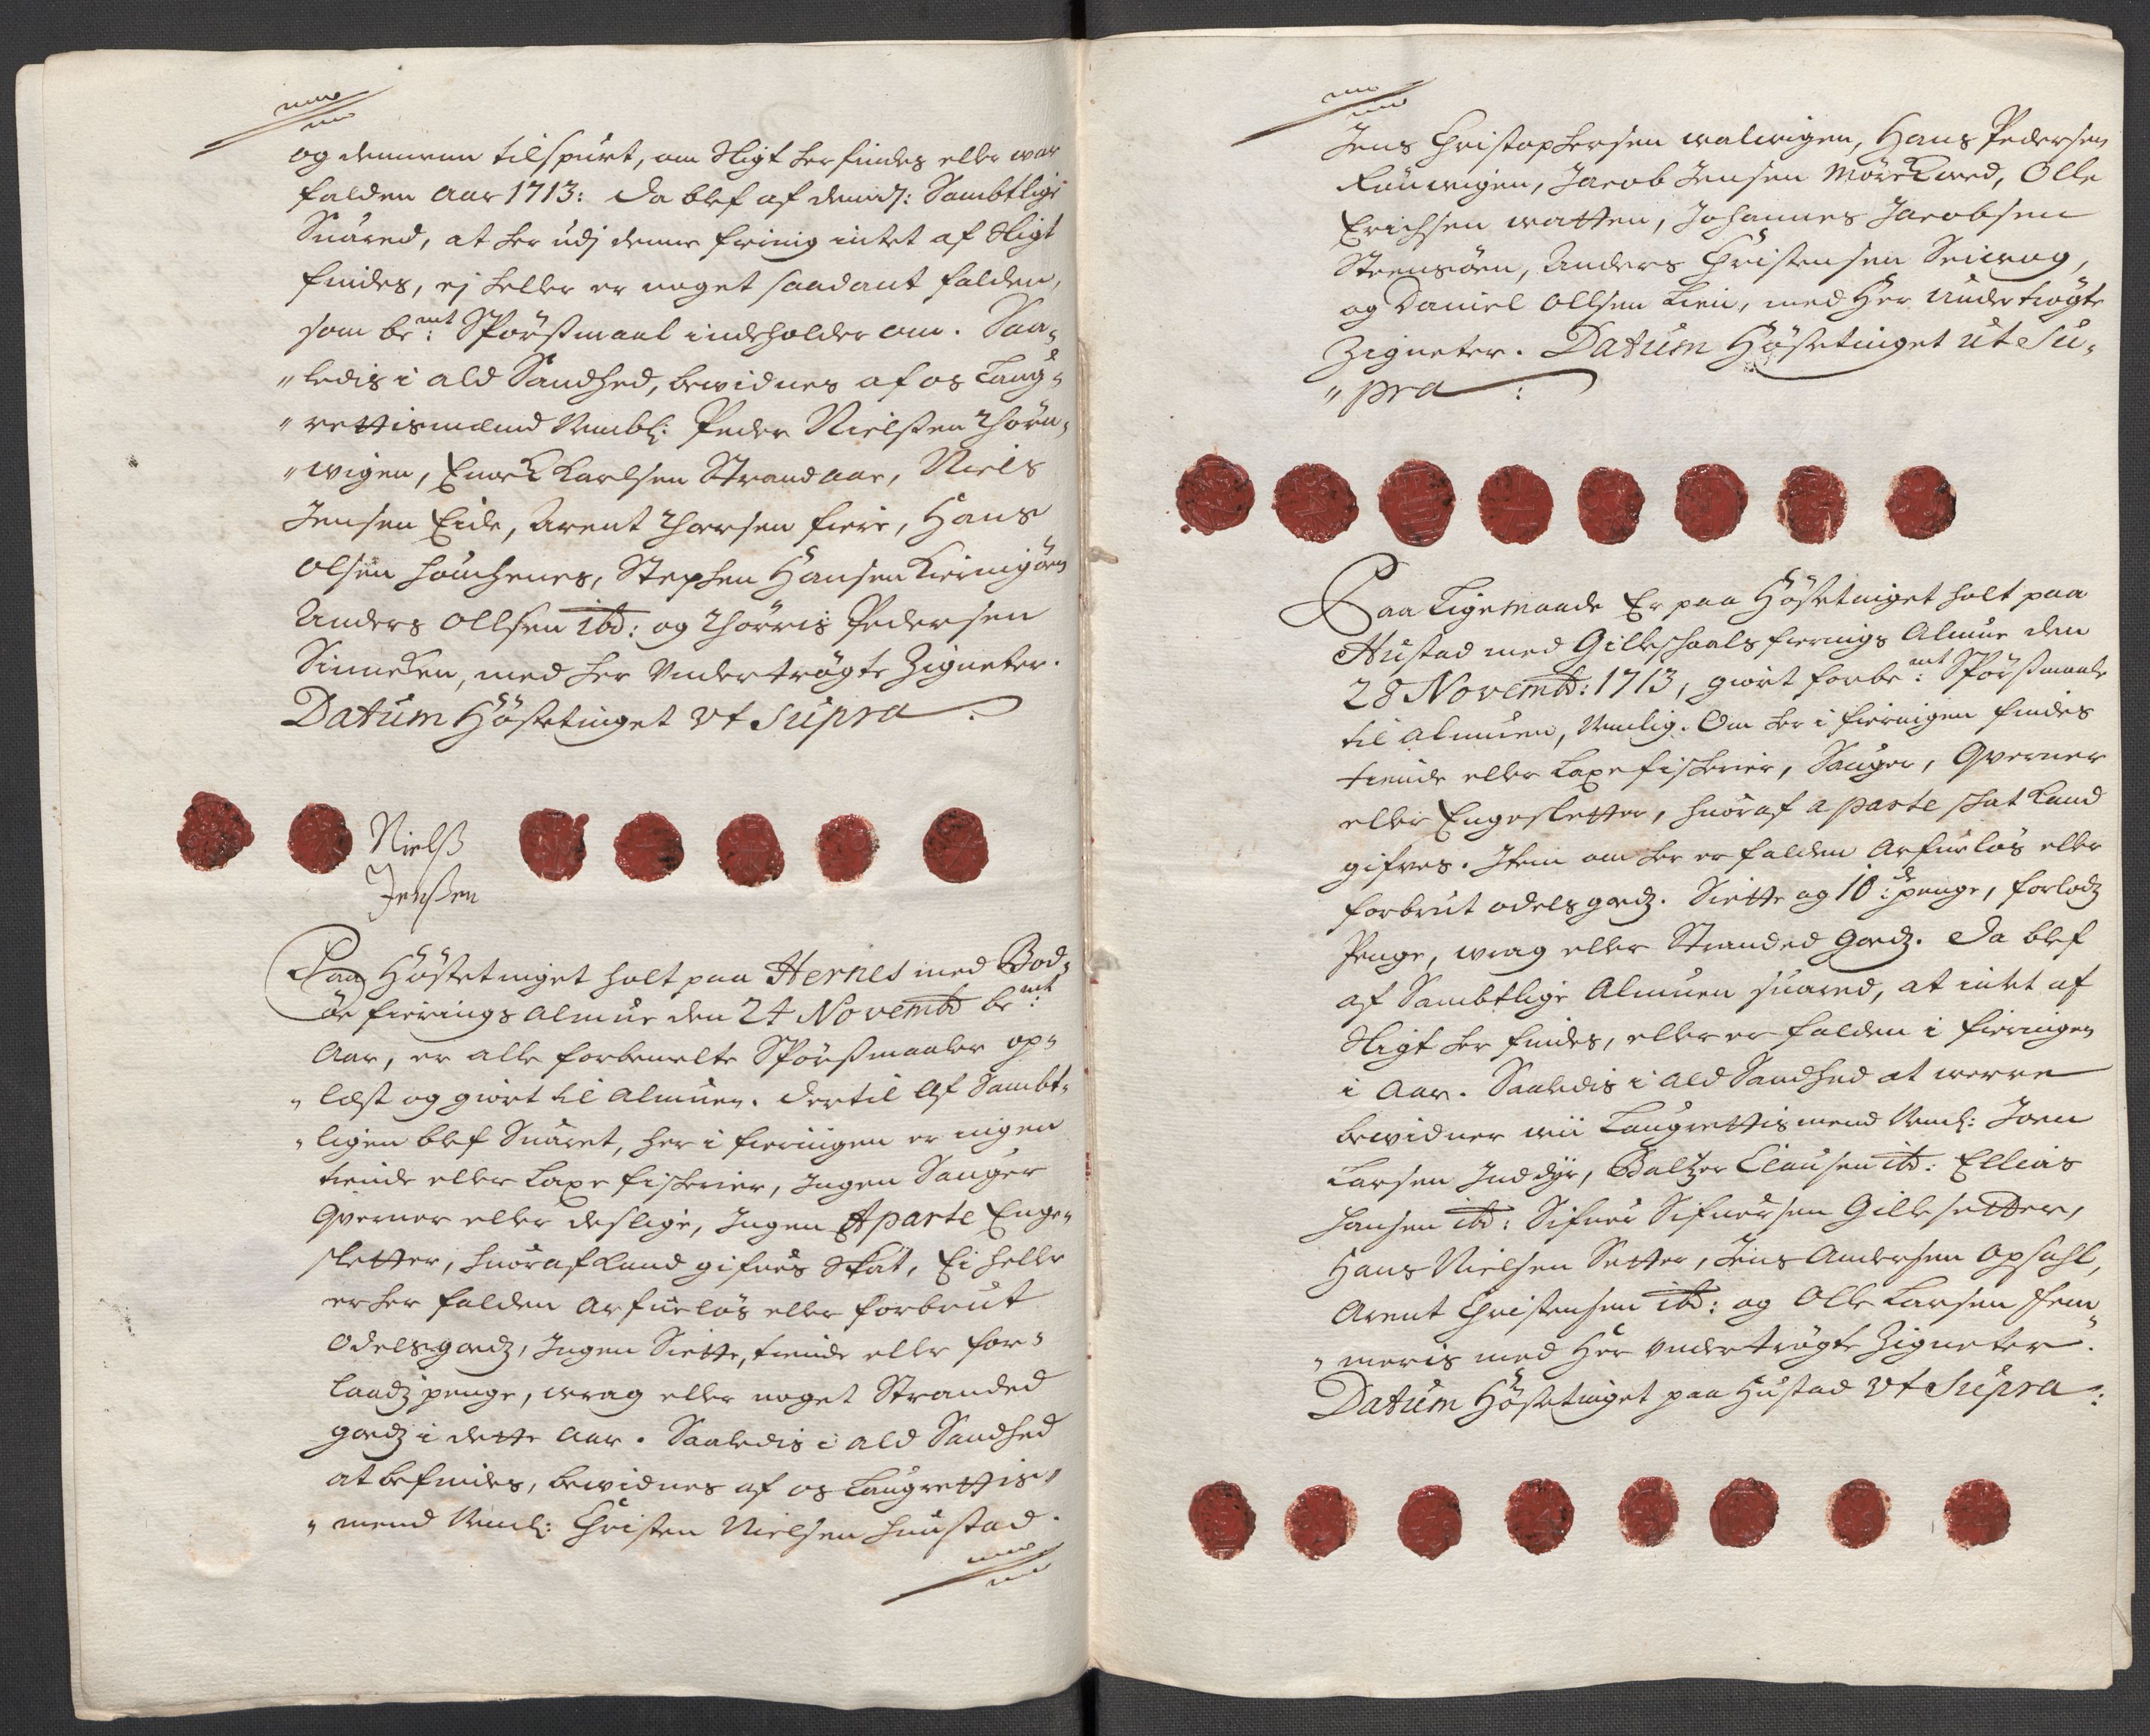 og dennem tilspurt, om Sligt her findes eller war
falden Aar 1713: da blef af dennß: Sambtlige
Suared, at her udj denne fiering intet af Sligt
findes, ej heller er noget saadant falden,
som be:mt Spörßmaal indeholder om. Saa-
"ledis i ald Sandhed, bewidnes af os Laug-
"rettismænd Nembl: Peder Nielßen Thorn-
"wigen, Enock Karlsen Strandaae, Niels
Jensen Eide, Arent Thorsen fiere, Hans
Olsen , Stephen Hansen Kierringöen
Anders Ollsen ibd: og Thorris Pedersen
, med her Undertrögte Zigneter.
Datum Höstetinget Ut Supra.
Nielß
Jenßen
Paa Höstetinget holt paa Hernes med Bod-
öe fierings Almue den 24 Novembd be:mt
Aar, er alle forbemelte Spörßmaaler op-
"læst og giort til Almuen. dertil Af Sambt-
"ligen blef Suaret, her i fieringen er ingen
tiende eller Laxe fiskerier, Ingen Sauger
Qverner eller deslige, Ingen Aparte Enge-
sletter, huoraf Land gifues Skat, Ei heller
er her falden Arfueløs eller forbrut
Odelsgodz, Ingen Siette, tiende eller for-
Laadz penge, wrag eller noget Stranded
godz i dette Aar. Saaledis i ald Sandhed
at befindes, bewidnes af os Laugrettis-
"mend Nembl: Christen Nielsen Hunstad.
Jens Christophersen walwigen, Hans Pedersen
, Jacob Jensen Mörckwed, Olle
Erichsen watten, Johannes Jacobsen
Steensöen, Anders Christensen Seiwog,
og Daniel Ollsen Lien, med Her Undertrögte
Zigneter. Datum Höstetinget ut Su-
"pra:
Paa Ligemaade Er paa Höstetinget holt paa
Hustad med Gilleschaals fierings Almue den
28 Novembd: 1713, giort forbe:mt Spörßmaale
til Almuen, Nemlig. Om her i fieringen findes
tiende eller Laxefiskerier, Sauger, Qverner
eller Engesletter, huoraf aparte skat Land
gifves. Item om her er falden Arfueløs eller
forbrut odelsgodz. Siette og 10:de penge, forlodz
Penge, wrag eller Stranded Godz. da blef
af Sambtlige Almuen suared, at intet af
Sligt her findes, eller er falden i fieringen
i Aar. Saaledis i Ald Sandhed at werre
bewidner wii Laugrettismend Neml: Joen
Larsen Inddyr, Baltzer Clausen ibd: Ellias
Hansen ibd: Sifuer Sifuersen Gillesetter,
Hans Nielsen Setter, Jens Andersen Opsahl,
Arent Christensen ibd: og Olle Larsen Fem-
"meris med Her undertrögte Zigneter.
Datum Höstetinget paa Hustad Ut Supra: